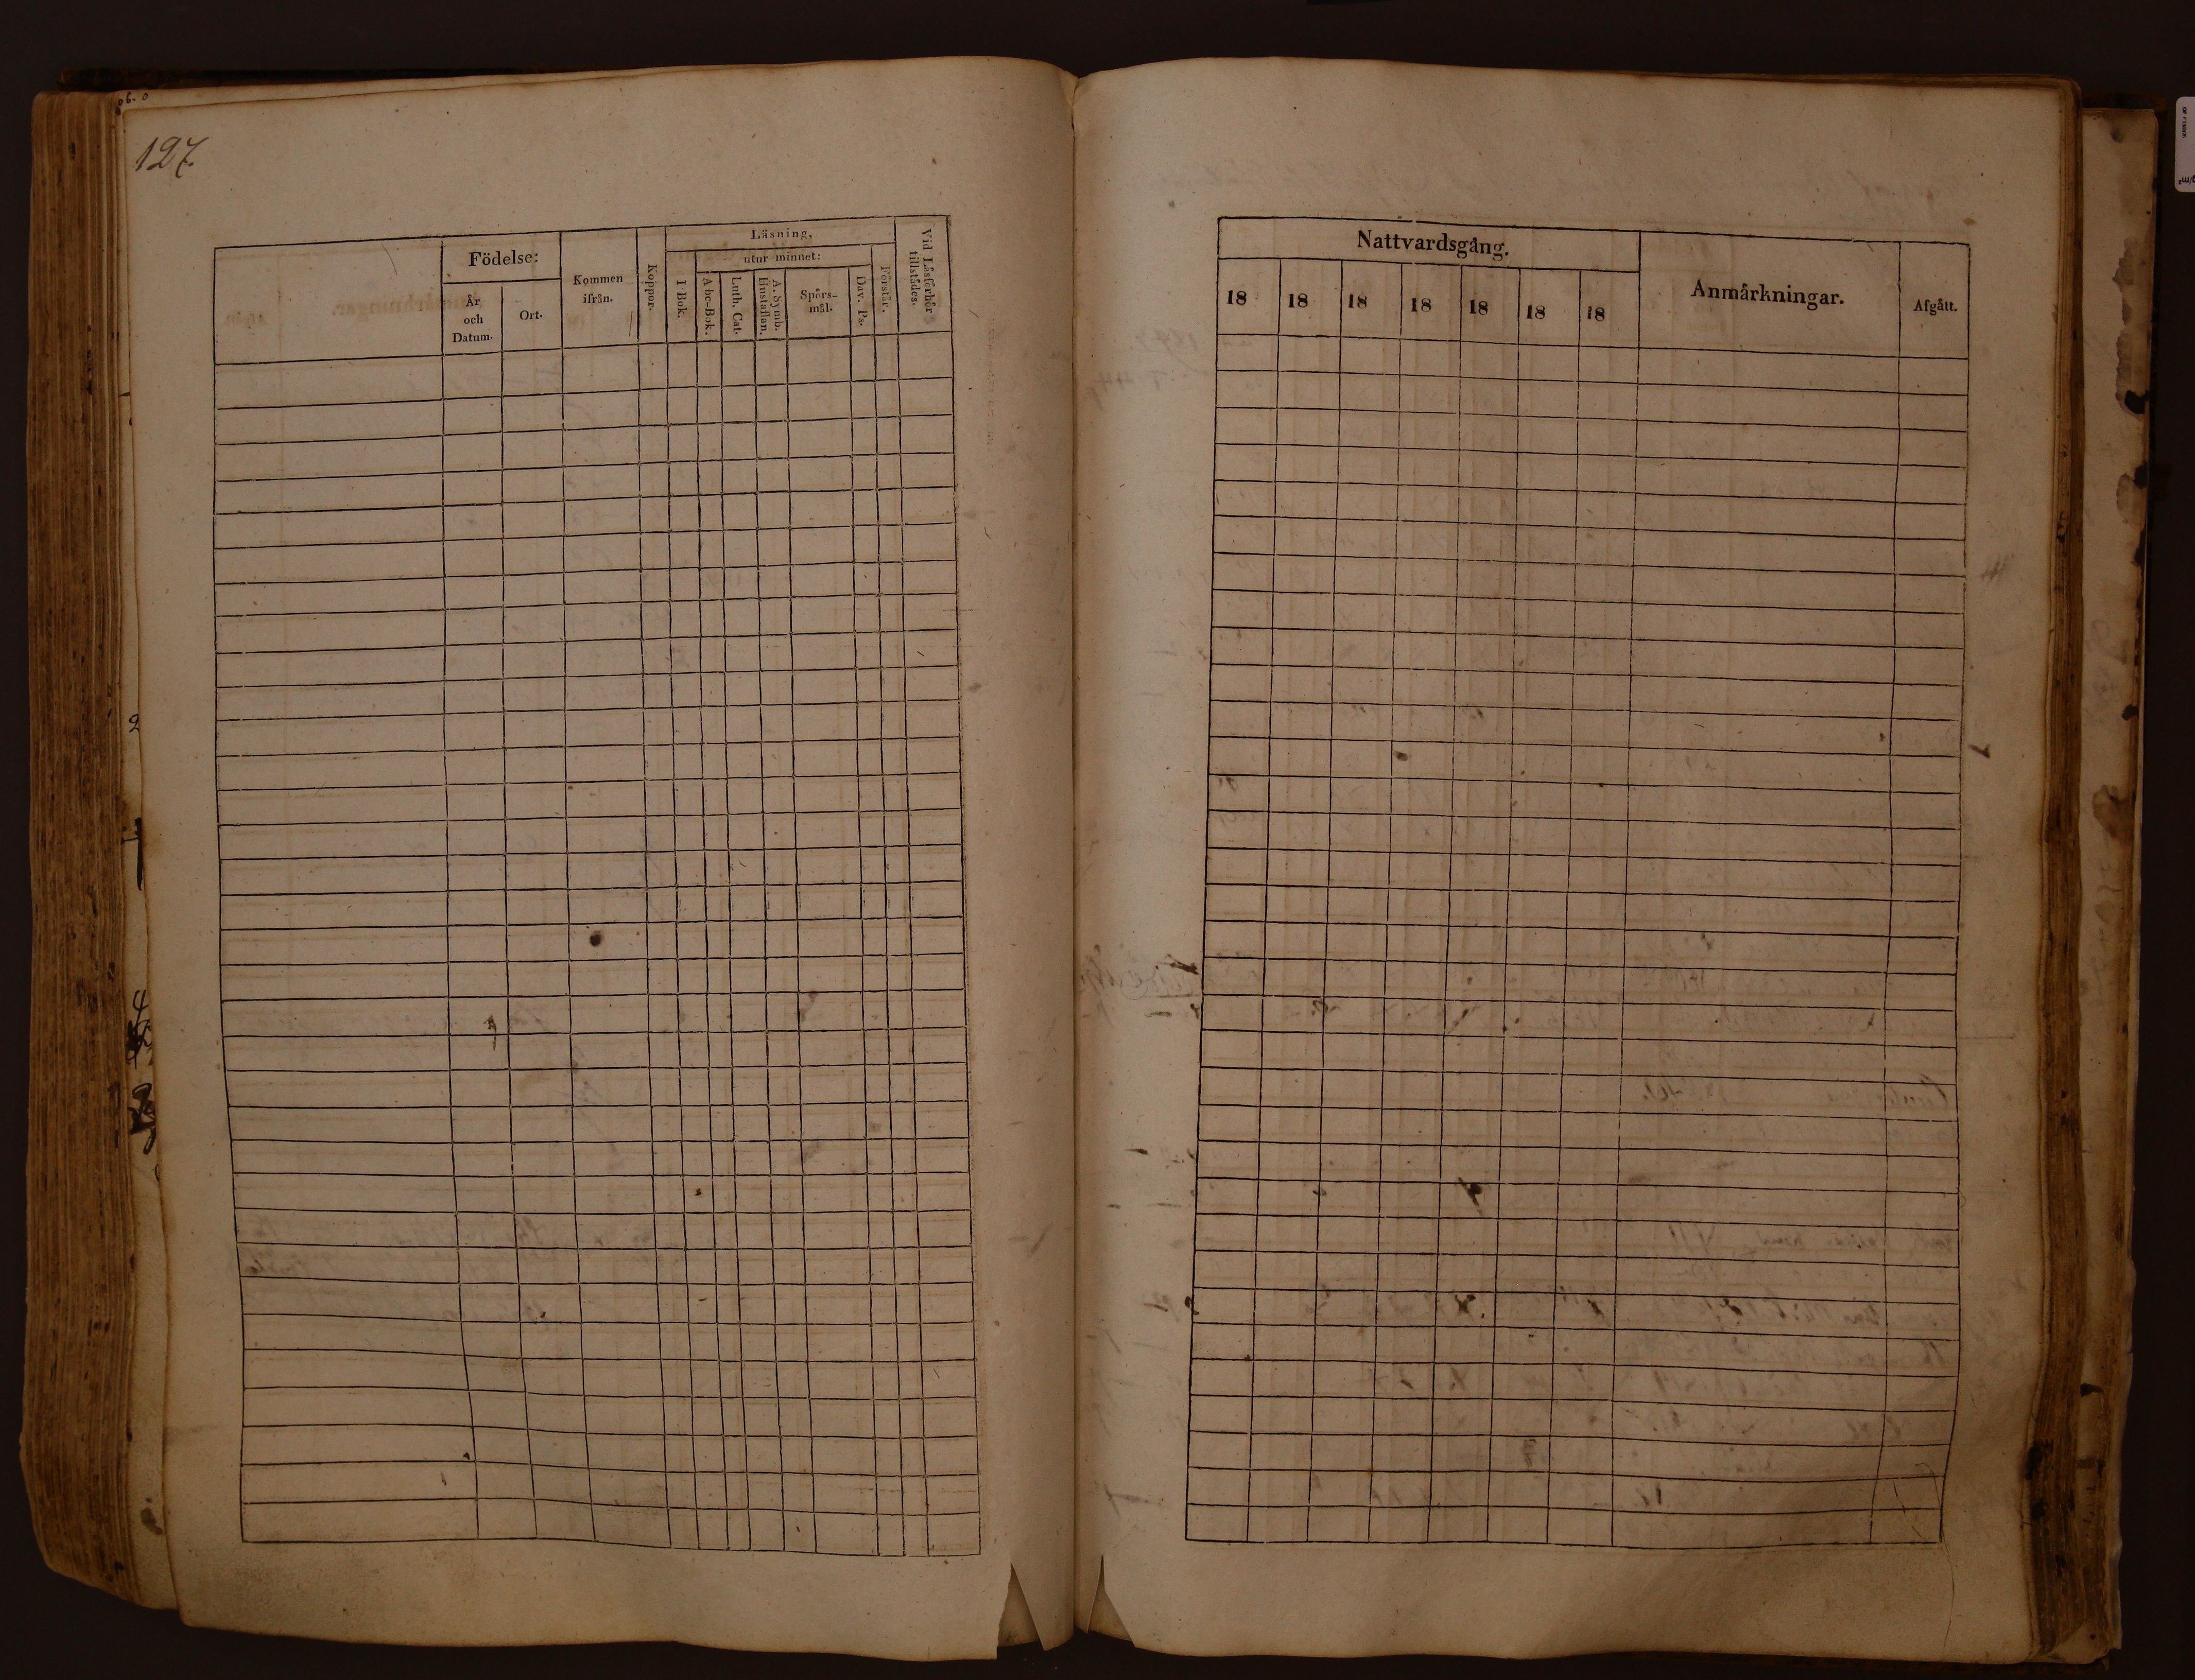 127.
Födelse:
År
och
Datum.
Ort.
Kommen
ifrån.
Koppor.
Läsning.
I Bok.
utur minnet:
Abc-Bok.
Luth. Cat.
A. Symb.
Hustaflan.
Spörs-
mål.
Dav. Ps.
Förstår.
Vid Läsförhör
tillstådes.
Nattvardsgång.
18 18 18 18 18 18 18
Anmårkningar.
Afgått.